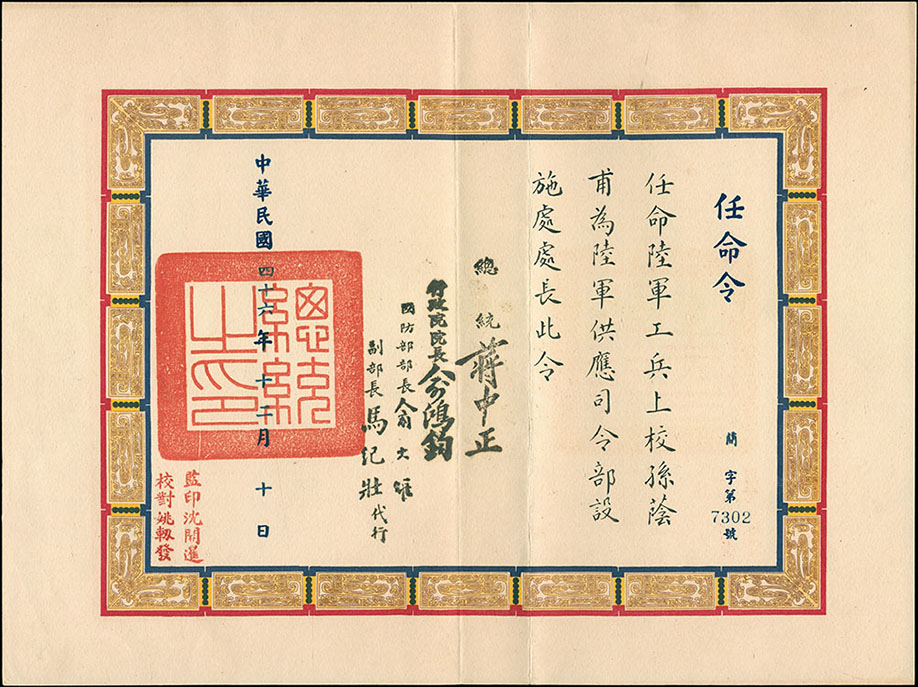 任命令
簡字第7302號
任命陸軍工兵上校孫蔭
甫為陸軍供應司令部設
施處處長此令
總統 蔣中正
行政院院長 俞鴻鈞
國防部部長 俞大維
副部長 馬紀壯代行
總統之印
中華民國四十六年十二月十日
監印沈開暹
校對姚軔發